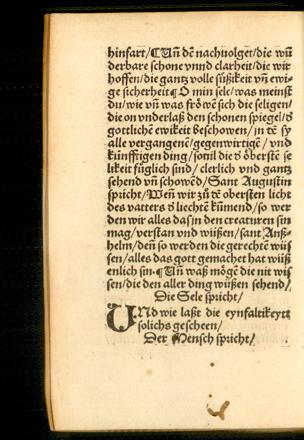 hinfart/ ¶ Uñ dẽ nachuolget/ die wũ
derbare schone vnnd clarheit/ die wir
hoffen/ die gantz volle süßikeit vñ ewi-
ge sicherheit ¶ O min sele/ was meinst
du/ wie vñ was frôwẽ sich die seligen/
die on vnderlaß den schonen spiegel/ ď
gottlichẽ ewikeit beschowen/ in tẽ sy
alle vergangenẽ/ gegenwirtigẽ/ vnd
künfftigen ding/ souil die ď ôberstẽ se
likeit füglich sind/ clerlich vnd gantz
sehend vñ schowẽd/ Sant Augustin
spricht/ Weñ wir zů tẽ obersten licht
des vatters ď liechtẽ kũmend/ so wer
den wir alles das in den creaturen sin
mag/ verstan vnd wüßen/ sant Anß-
helm/ deñ so werden die gerechtẽ wüs
sen/ alles das gott gemachet hat wüß
enlich sin ¶ Uñ waß môgẽ die nit wis
sen/ die den aller ding wüßen sehend/
Die Sele spricht/
UNd wie laßt die eynfaltikeytt
solichs gescheen/
Der Mensch spricht/